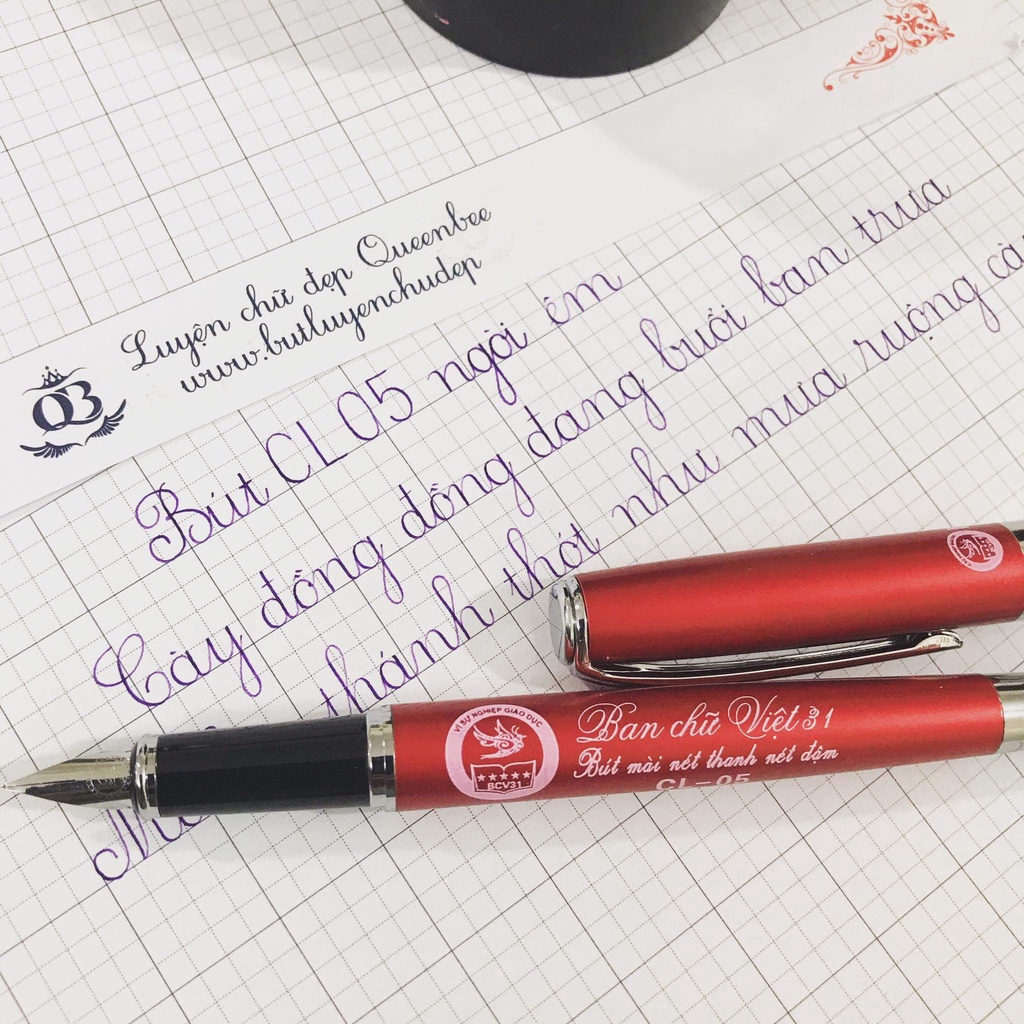 Luyện chữ đẹp Queenbee
www.butluyenchudep
QB
Bút CL05 ngòi êm
Cày đồng đồng đang buổi ban trưa
thánh thót như mưa ruộng cà
VÌ SỰ NGHIỆP GIÁO DỤC
BCV31
Ban chữ Việt 31
Bút mài nét thanh nét đậm
CL-05